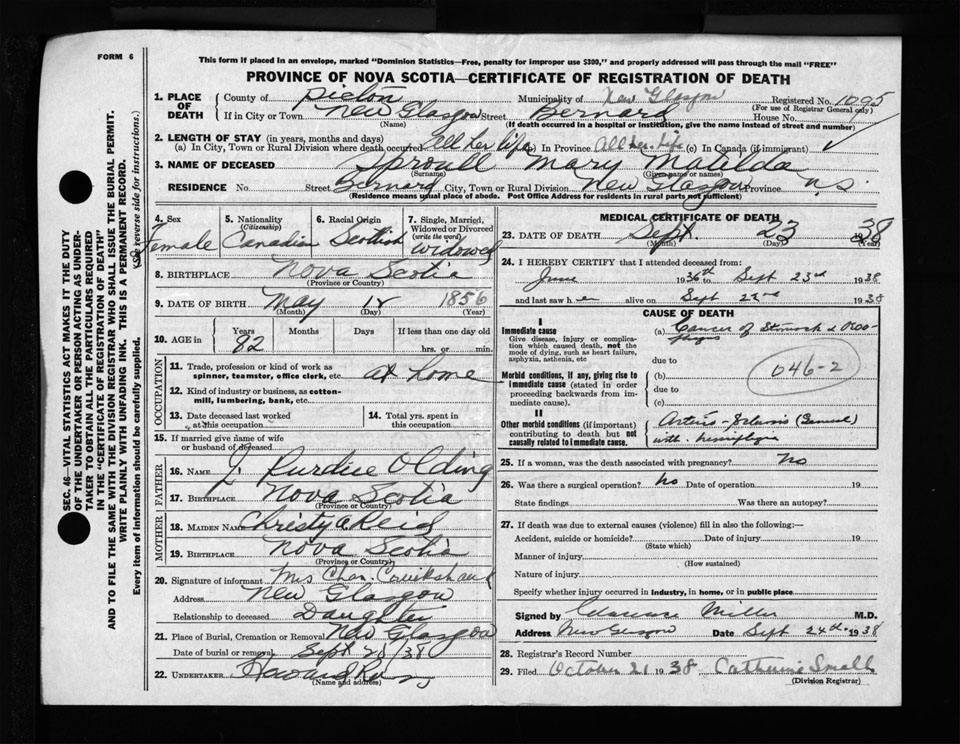 FORM 6
This form if placed in an envelope, marked "Dominion Statistics—Free, penalty for improper use $300," and properly addressed will pass through the mail "FREE"
PROVINCE OF NOVA SCOTIA—CERTIFICATE OF REGISTRATION OF DEATH
SEC. 46—VITAL STATISTICS ACT MAKES IT THE DUTY
OF THE UNDERTAKER OR PERSON ACTING AS UNDER-
TAKER TO OBTAIN ALL THE PARTICULARS REQUIRED
IN THE "CERTIFICATE OF REGISTRATION OF DEATH"
AND TO FILE THE SAME WITH THE DIVISION REGISTRAR WHO SHALL ISSUE THE BURIAL PERMIT.
WRITE PLAINLY WITH UNFADING INK. THIS IS A PERMANENT RECORD.
Every item of information should be carefully supplied. (See reverse side for instructions.)
1. PLACE OF DEATH County of Pictou Municipality of New Glasgow Registered No. 1095
(For use of Registrar General only)
If in City or Town New Glasgow Street Bernard House No.
(Name) (If death occurred in a hospital or institution, give the name instead of street and number)
2. LENGTH OF STAY (in years, months and days)
(a) In City, Town or Rural Division where death occurred All her life (b) In Province All her life (c) In Canada (if immigrant)
3. NAME OF DECEASED Sproull Mary Matilda
(Surname) (Given name or names)
RESIDENCE No. Street Bernard City, Town or Rural Division New Glasgow Province N.S.
(Residence means usual place of abode. Post Office Address for residents in rural parts not sufficient)
4. Sex 5. Nationality (Citizenship) 6. Racial Origin 7. Single, Married, Widowed or Divorced (write the word)
Female Canadian Scottish Widowed
8. BIRTHPLACE Nova Scotia
(Province or Country)
9. DATE OF BIRTH May 1856
(Month) (Day) (Year)
10. AGE in Years Months Days If less than one day old
82 hrs. or min.
OCCUPATION
11. Trade, profession or kind of work as spinner, teamster, office clerk, etc. at home
12. Kind of industry or business, as cotton-mill, lumbering, bank, etc.
13. Date deceased last worked at this occupation
14. Total yrs. spent in this occupation
15. If married give name of wife or husband of deceased
FATHER
16. NAME J. Purdue Olding
17. BIRTHPLACE Nova Scotia
(Province or Country)
MOTHER
18. MAIDEN NAME Christy A Reid
19. BIRTHPLACE Nova Scotia
(Province or Country)
20. Signature of informant Mrs Chas. Cruikshank
Address New Glasgow
Relationship to deceased Daughter
21. Place of Burial, Cremation or Removal New Glasgow
Date of burial or removal Sept /38
22. UNDERTAKER
(Name and address)
MEDICAL CERTIFICATE OF DEATH
23. DATE OF DEATH Sept. 23 38
(Month) (Day) (Year)
24. I HEREBY CERTIFY that I attended deceased from:
June 1936 to Sept 23rd 1938
and last saw her alive on Sept 22nd 1938
CAUSE OF DEATH
I
Immediate cause
Give disease, injury or complication which caused death, not the mode of dying, such as heart failure, asphyxia, asthenia, etc
(a) Cancer of Stomach &
due to
Morbid conditions, if any, giving rise to immediate cause (stated in order proceeding backwards from immediate cause).
(b)
due to
(c)
046-2
II
Other morbid conditions (if important) contributing to death but not causally related to immediate cause.
Arterio-Sclerosis (General)
with hemiplegia
25. If a woman, was the death associated with pregnancy? No
26. Was there a surgical operation? No Date of operation 19
State findings Was there an autopsy?
27. If death was due to external causes (violence) fill in also the following:—
Accident, suicide or homicide? Date of injury 19
(State which)
Manner of injury
(How sustained)
Nature of injury
Specify whether injury occurred in industry, in home, or in public place
Signed by Clarence Miller M.D.
Address New Glasgow Date Sept 24th 1938
28. Registrar's Record Number
29. Filed October 21 1938 Catherine Small
(Division Registrar)